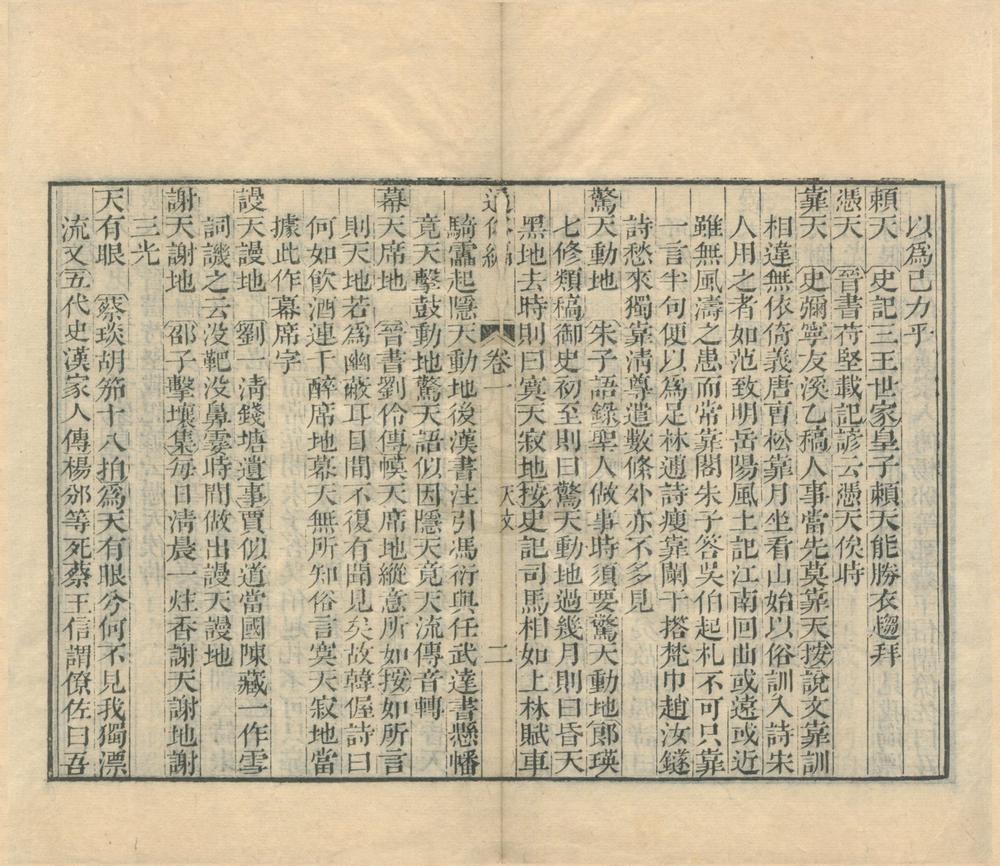 以爲己力乎
賴天　史記三王世家皇子賴天能勝衣趨拜
憑天　晉書苻堅載記諺云憑天俟時
靠天　史彌寧友溪乙稿人事當先莫靠天按說文靠訓
相違無依倚義唐曹松靠月坐看山始以俗訓入詩朱
人用之者如范致明岳陽風土記江南回曲或遠或近
雖無風濤之患而常靠閣朱子答吳伯起札不可只靠
一言半句便以爲足林逋詩瘦靠闌干搭梵巾趙汝鐩
詩愁來獨靠清尊遣數條外亦不多見
驚天動地　朱子語錄聖人做事時須要驚天動地郎瑛
七修類稿御史初至則曰驚天動地過幾月則曰昏天
黑地去時則曰寞天寂地按史記司馬相如上林賦車
通俗編　卷一　天文　二
騎靁起隱天動地後漢書注引馮衍與任武達書懸幡
竟天擊鼓動地驚天語似因隱天竟天流傳音轉
幕天席地　晉書劉伶傳幙天席地縱意所如按如所言
則天地若爲幽蔽耳目間不復有聞見矣故韓偓詩曰
何如飲酒連千醉席地幕天無所知俗言寞天寂地當
據此作幕席字
謾天謾地　劉一清錢塘遺事賈似道當國陳藏一作雪
詞譏之云没靶没鼻霎時間做出謾天謾地
謝天謝地　邵子擊壤集每日清晨一炷香謝天謝地謝
三光
天有眼　蔡琰胡笳十八拍爲天有眼兮何不見我獨漂
流又五代史漢家人傳楊邠等死蔡王信謂僚佐曰吾